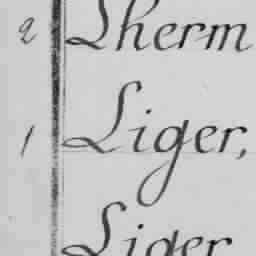 2 Lherm
1 Liger,
Liger